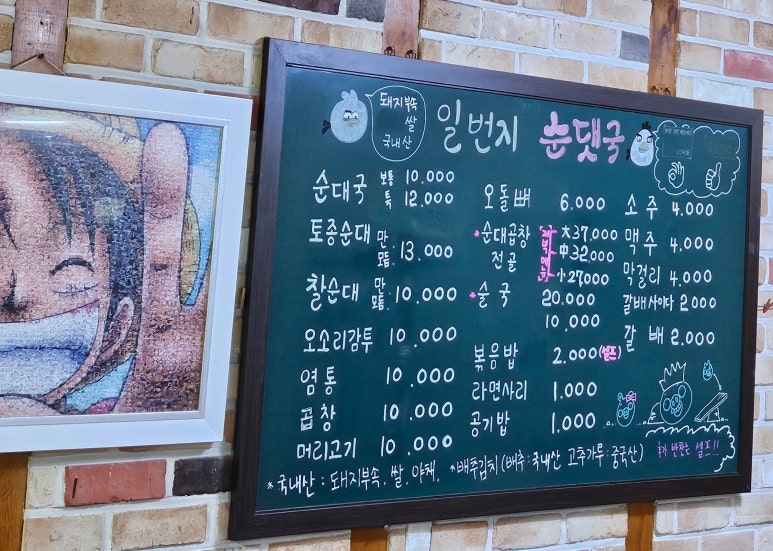 돼지부속
쌀
국내산
일번지 순댓국
순대국 보통 10.000
특 12.000
토종순대 만
모듬 13.000
찰순대 만
모듬 10.000
오소리감투 10.000
염통 10.000
곱창 10.000
머리고기 10.000
오돌뼈 6.000
*순대곱창 大37.000
전골 中32.000
小27.000
*술국 20.000
10.000
볶음밥 2.000(셀프)
라면사리 1.000
공기밥 1.000
소주 4.000
맥주 4.000
막걸리 4.000
갈배사이다 2000
갈배 2.000
*국내산:돼지부속.쌀.야채, *배추김치(배추:국내산 고추가루:중국산)
추가 반찬은 셀프!!